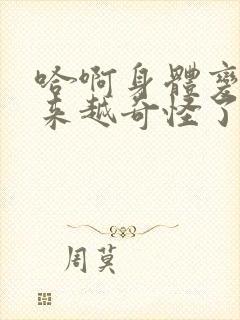 哈啊身體变
来越奇怪了
周莫